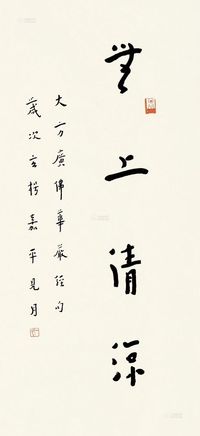 無上清涼
大方廣佛華嚴經句
歲次玄枵嘉平見月